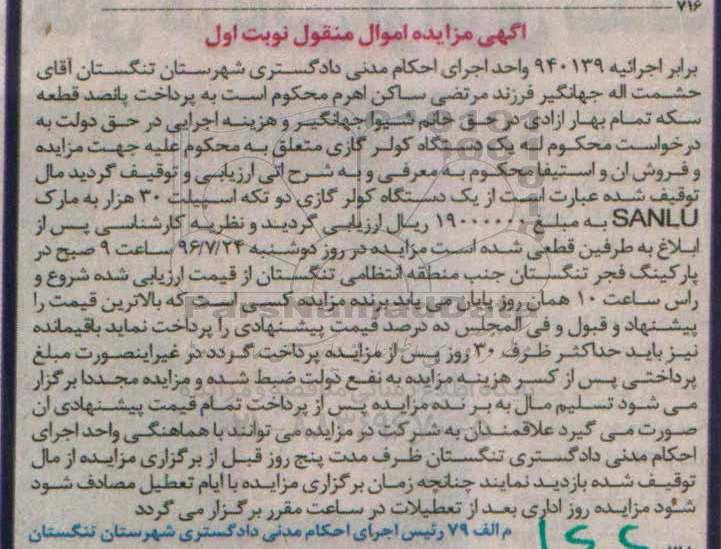 ۷۱۶
آگهی مزایده اموال منقول نوبت اول
برابر اجرائیه ۹۴۰۱۳۹ واحد اجرای احکام مدنی دادگستری شهرستان تنگستان آقای
حشمت اله جهانگیر فرزند مرتضی ساکن اهرم محکوم است به پرداخت پانصد قطعه
سکه تمام بهار ازادی در حق خانم شیوا جهانگیر و هزینه اجرایی در حق دولت به
درخواست محکوم له یک دستگاه کولر گازی متعلق به محکوم علیه جهت مزایده
و فروش ان و استیفا محکوم به معرفی و به شرح اتی ارزیابی و توقیف گردید مال
توقیف شده عبارت است از یک دستگاه کولر گازی دو تکه اسپیلت ۳۰ هزار به مارک
SANLU به مبلغ ۱۹۰۰۰۰۰۰ ریال ارزیابی گردید و نظریه کارشناسی پس از
ابلاغ به طرفین قطعی شده است مزایده در روز دوشنبه ۹۶/۷/۲۴ ساعت ۹ صبح در
پارکینگ فجر تنگستان جنب منطقه انتظامی تنگستان از قیمت ارزیابی شده شروع و
راس ساعت ۱۰ همان روز پایان می یابد برنده مزایده کسی است که بالاترین قیمت را
پیشنهاد و قبول و فی المجلس ده درصد قیمت پیشنهادی را پرداخت نماید باقیمانده
نیز باید حداکثر ظرف ۳۰ روز پس از مزائده پرداخت گردد در غیراینصورت مبلغ
پرداختی پس از کسر هزینه مزایده به نفع دولت ضبط شده و مزایده مجددا برگزار
می شود تسلیم مال به بر نده مزایده پس از پرداخت تمام قیمت پیشنهادی ان
صورت می گیرد علاقمندان به شرکت در مزایده می توانند با هماهنگی واحد اجرای
احکام مدنی دادگستری تنگستان ظرف مدت پنج روز قبل از برگزاری مزایده از مال
توقیف شده بازدید نمایند چنانچه زمان برگزاری مزایده با ایام تعطیل مصادف شود
شود مزایده روز اداری بعد از تعطیلات در ساعت مقرر برگزار می گردد
م الف ۷۹ رئیس اجرای احکام مدنی دادگستری شهرستان تنگستان
ParsNamadData